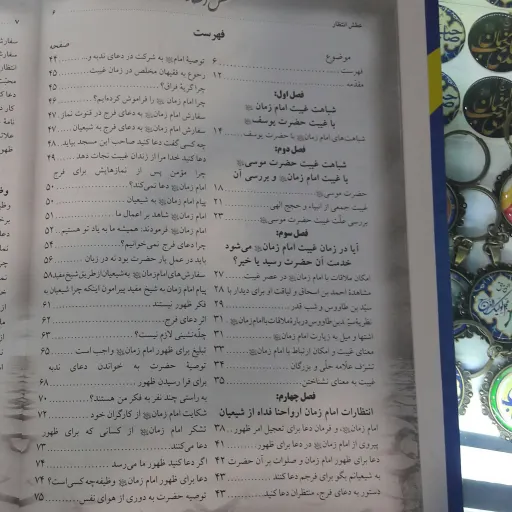 عطش انتظار
۶
فهرست
موضوع
صفحه
فهرست ........ ۶
مقدمه ........ ۱۲
فصل اول:
شباهت غیبت امام زمان
با غیبت حضرت یوسف
شباهت‌های امام زمان با حضرت یوسف ........ ۱۴
فصل دوم:
شباهت غیبت حضرت موسی
با غیبت امام زمان و بررسی آن
حضرت موسی ........ ۱۸
غیبت جمعی از انبیاء و حجج الهی ........ ۲۱
بررسی علّت غیبت حضرت موسی ........ ۲۳
فصل سوم:
آیا در زمان غیبت امام زمان می‌شود
خدمت آن حضرت رسید یا خیر؟
امکان ملاقات با امام زمان در عصر غیبت ........ ۲۷
مشاهدۀ احمد بن اسحاق و لیاقت او برای دیدار با ۲۸
سیّد بن طاووس و شب قدر ........ ۲۹
نظریۀ سیّد بن طاووس دربارۀ ملاقات با امام زمان ۳۱
اشتها و میل به زیارت امام زمان ........ ۳۱
معنای غیبت و امکان ارتباط با امام زمان ........ ۳۳
تشرّف علّامه حلّی و بزرگان ........ ۳۴
غیبت به معنای نشناختن ........ ۳۵
فصل چهارم:
انتظارات امام زمان ارواحنا فداه از شیعیان
امام زمان، و فرمان دعا برای تعجیل امر ظهور .. ۳۸
پیروی از امام زمان در دعا برای ظهور ........ ۴۱
دعا برای ظهور امام زمان و صلوات بر آن حضرت ۴۲
به شیعیانم بگو برای فرجم دعا کنند ........ ۴۳
دستور به دعای فرج، منتظران دعا کنید ........ ۴۳
توصیۀ امام به شرکت در دعای ندبه و... ۴۴
رجوع به فقیهان مخلص در زمان غیبت ........ ۴۵
چرا گریۀ فراق؟ ........ ۴۵
چرا امام زمان را فراموش کرده‌ایم؟ ........ ۴۶
سفارش امام زمان به دعای فرج در قنوت نماز. ۴۷
سفارش امام زمان به دعای فرج به شیعیان ........ ۴۷
چه کسی گفت دعا کنید صاحب این مسجد بیاید. ۴۸
دعا کنید خدا مرا از زندان غیبت نجات دهد ... ۴۹
چرا مؤمن پس از نمازهایش برای فرج
امام زمان دعا نمی‌کند؟ ........ ۵۰
پیام امام زمان به شیعیان ........ ۵۰
امام زمان شاهد بر اعمال ما ........ ۵۱
امام زمان فرمودند: همیشه ما به یاد تو هستیم .. ۵۲
چرا دعای فرج نمی‌خوانیم؟ ........ ۵۴
باید در عمل یار حضرت بود نه در زبان ........ ۵۶
سفارش‌های امام زمان به شیعیان از طریق شیخ مفید ۵۸
پیام امام زمان به شیخ مفید پیرامون اینکه چرا شیعیان به
فکر ظهور نیستند ........ ۶۱
اثر دعای فرج ........ ۶۲
چلّه‌نشینی لازم نیست؟ ........ ۶۳
تبلیغ برای ظهور امام زمان واجب است ........ ۶۵
توصیۀ حضرت به خواندن دعای ندبه
برای فرا رسیدن ظهور ........ ۶۸
به راستی چند نفر به فکر من هستند؟ ........ ۷۰
شکایت امام زمان از کارگران خود ........ ۷۲
تشکر امام زمان از کسانی که برای ظهور
دعا می‌کنند ........ ۷۳
اگر دعا کنید ظهور ما می‌رسد ........ ۷۴
دعا برای ظهور امام زمان وظیفه چه کسی است؟ ۷۴
توصیه حضرت به دوری از هوای نفس ........ ۷۵
۷